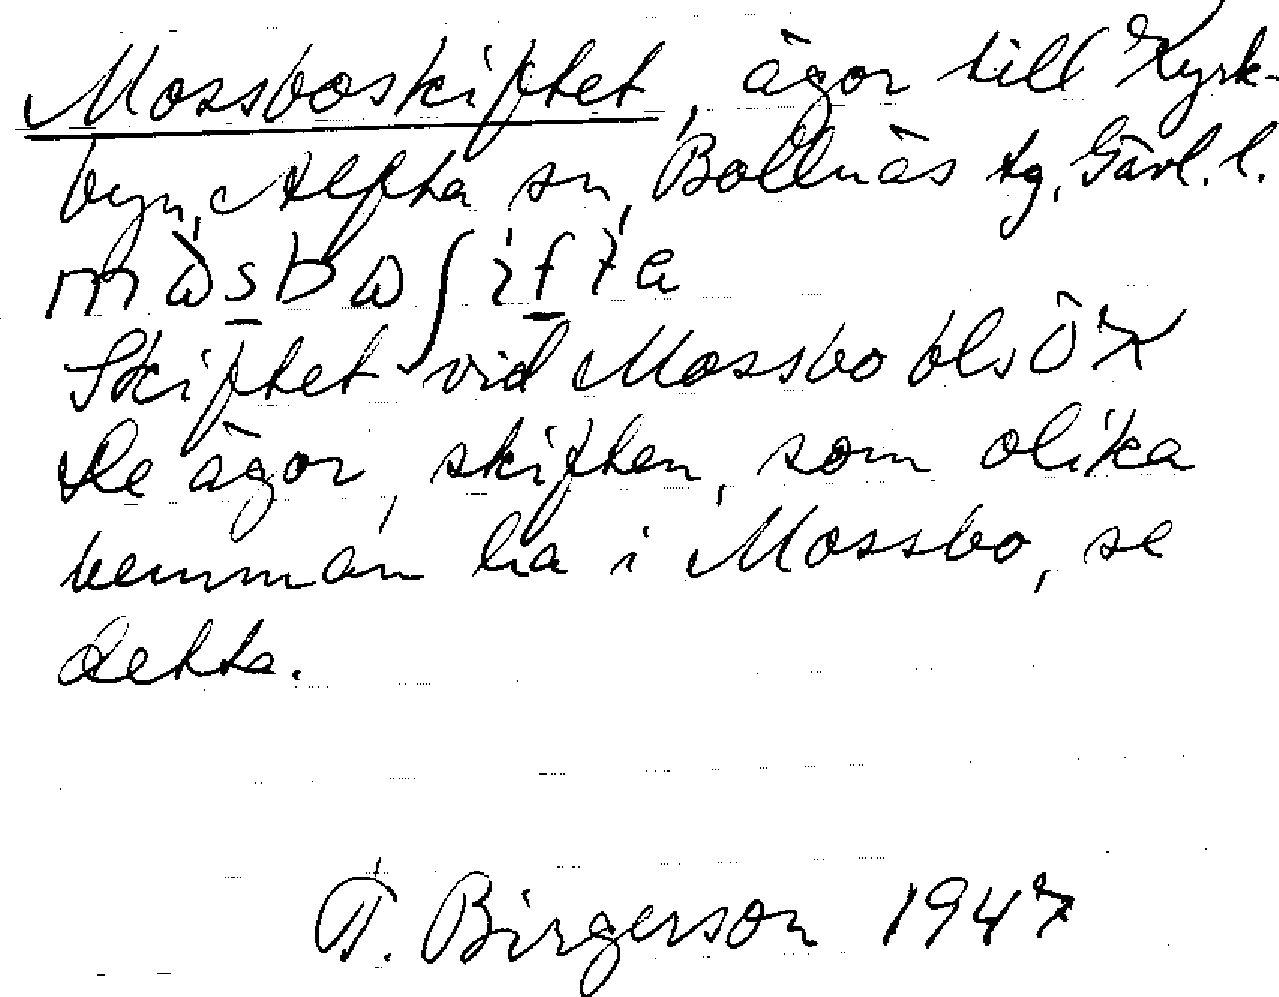 Mossboskiftet, ägor till Kyrk-
byn, Alfta sn, Bollnäs tg, Gävl. l.
Skiftet vid Mossbo bls ÖK
De ägor, skiften, som olika
hemman ha i Mossbo, se
detta.
T. Birgerson 1947